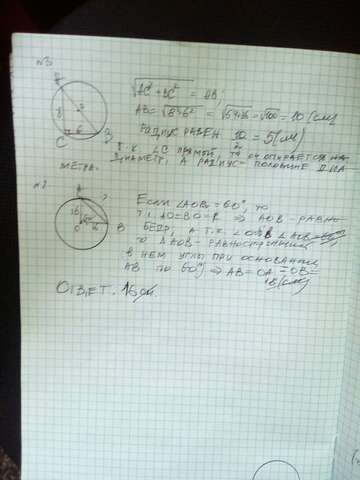 №3
√AC² + BC² = AB;
AB = √8²+6² = √64+36 = √100 = 10 (см)
РАДИУС РАВЕН 10/2 = 5 (см)
Т. К. ∠C ПРЯМОЙ, ТО ОН ОПИРАЕТСЯ НА
ДИАМЕТР, А РАДИУС - ПОЛОВИНЕ ДИА
МЕТРА.
ЕСЛИ ∠AOB = 60°, ТО
Т.К. AO = BO = R ⇒ AOB - РАВНО
БЕДР, А Т.К. ∠
ТО △AOB - РАВНОСТОРОННИЙ
В НЕМ УГЛЫ ПРИ ОСНОВАНИИ
AB ПО 60° ⇒ AB = OA = OB =
ОТВЕТ. 16 см.